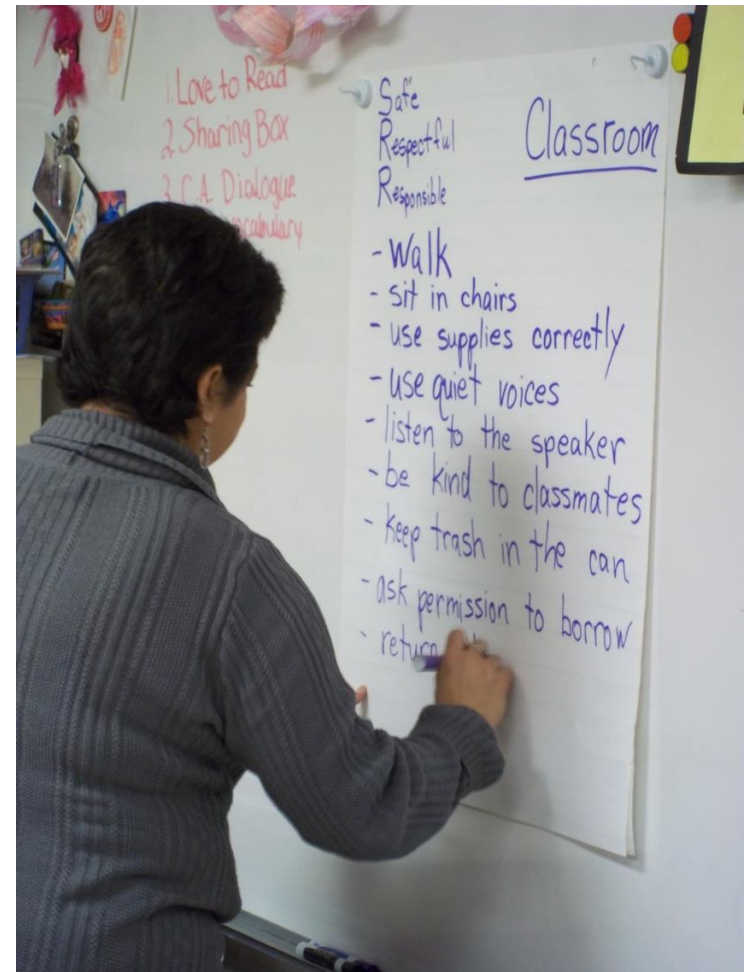 1. Love to Read
2. Sharing Box
3. C.A. Dialogue
vocabulary
Safe
Respectful
Responsible
Classroom
- Walk
- sit in chairs
- use supplies correctly
- use quiet voices
- listen to the speaker
- be kind to classmates
- keep trash in the can
- ask permission to borrow
- return